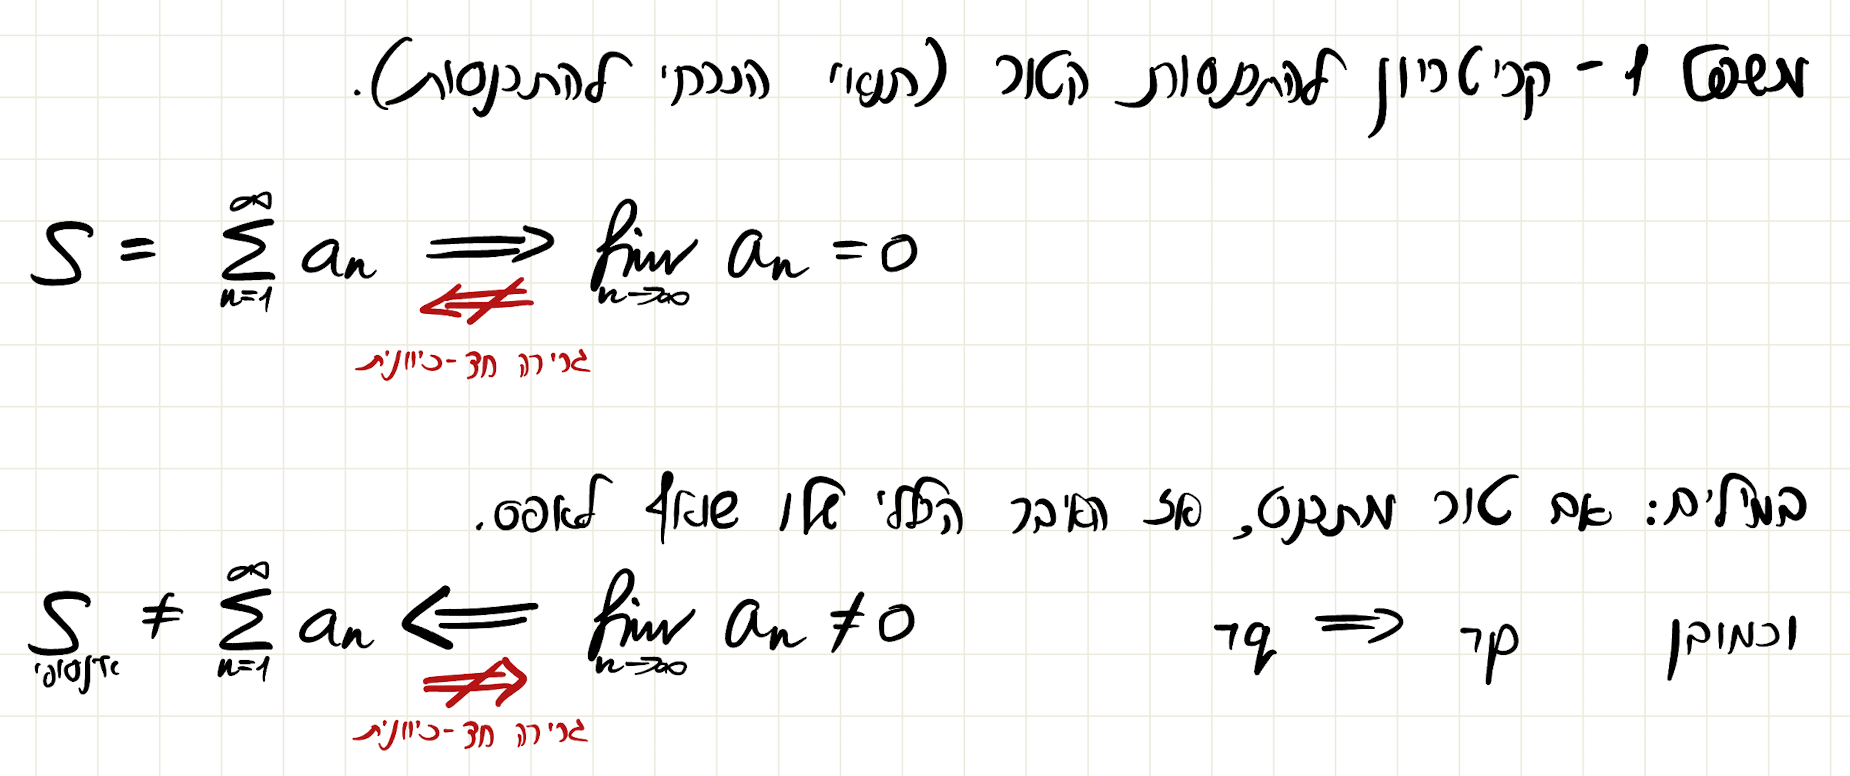 משפט 1 - קריטריון להתכנסות הטור (תנאי הכרחי להתכנסות).
S = ∑_{n=1}^{∞} a_n ⟹ lim_{n→∞} a_n = 0
⇍
גרירה חד-כיוונית
במילים: אם טור מתכנס, אז האיבר הכללי שלו שואף לאפס.
וכמובן ¬q ⟹ ¬p
S ≠ ∑_{n=1}^{∞} a_n ⟸ lim_{n→∞} a_n ≠ 0
⇏
גרירה חד-כיוונית